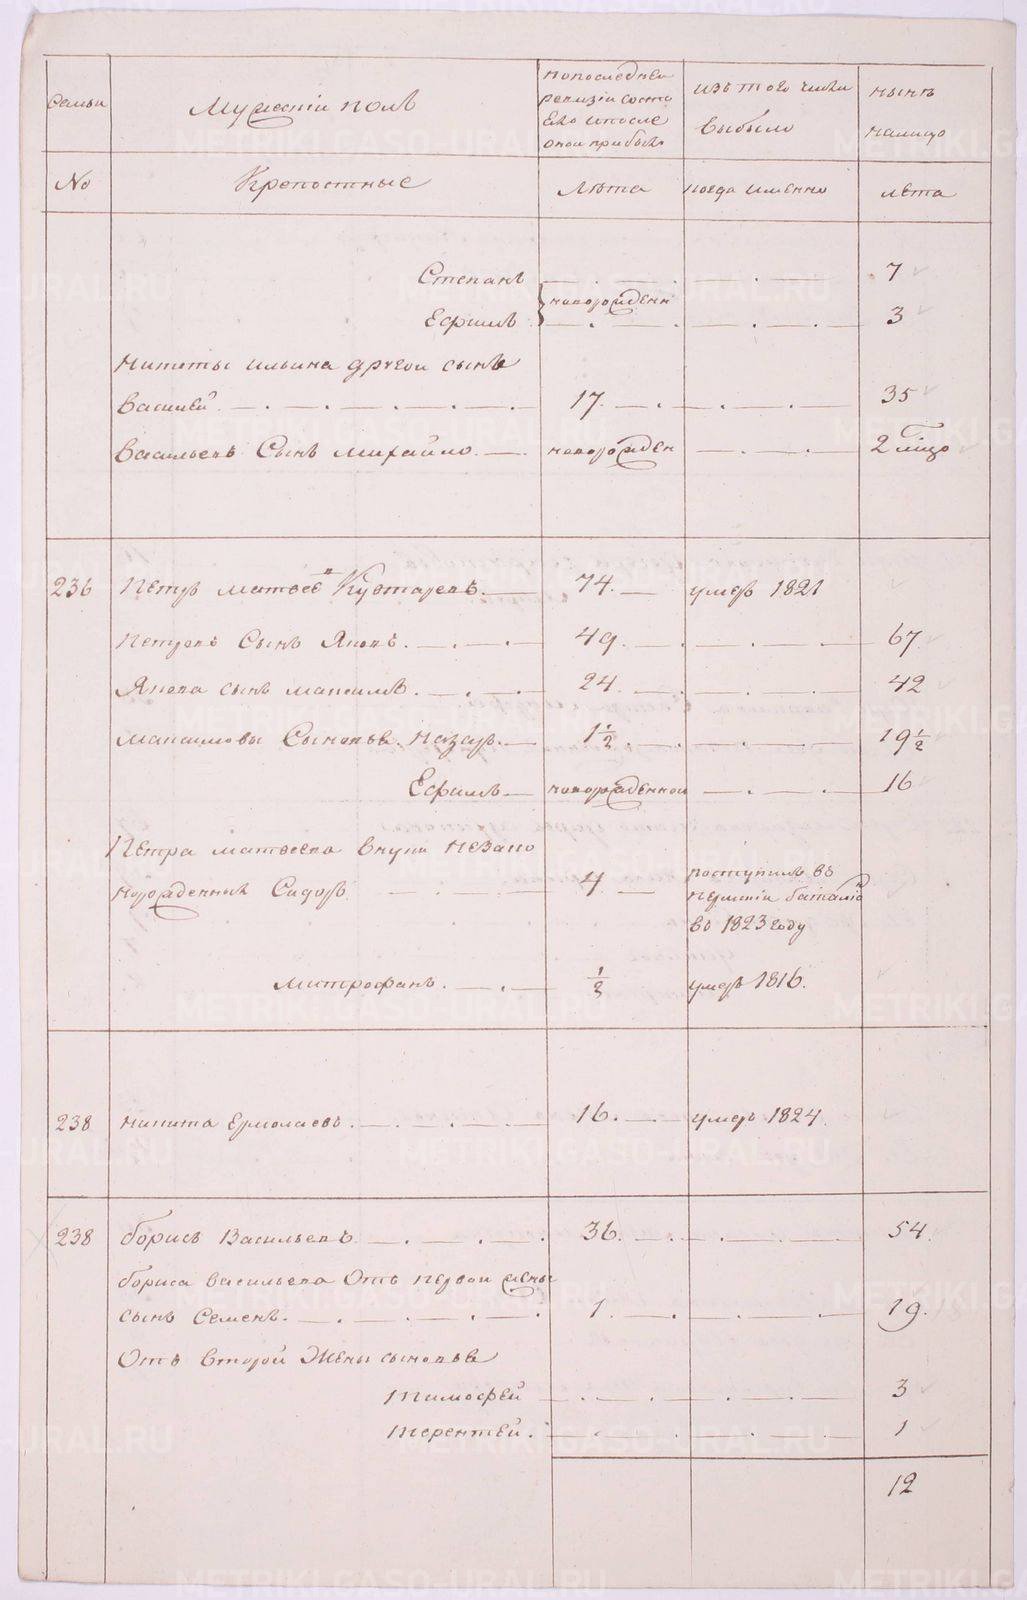 семьи
Мужескiй полъ
попоследней
ревизiи состо
яло ипосле
оной прибыло
изъ того числа
выбыло
нынѣ
налицо
No
Крепостные
Лѣта
когда именно
лѣта
Степанъ — . — . — 7
Ефимъ новорожденн — . — . — 3
Никиты ильина другой сынъ
Василей. — . — . — 17. — . — . — 35
Васильевъ Сынъ Михайло. — новорожден — . — . — 2
236 Петръ матвеевъ Кустаревъ. — 74. — умеръ 1821
Петровъ Сынъ Яковъ. — . — . 49. — . — . — 67.
Якова сынъ максимъ. — . — . 24. — . — . — 42
Максимовы Сыновья. Назаръ. — 1½. — . — . — 19½
Ефимъ — новорожденной — . — . — 16
Петра матвеева внуки незано
норожденныя Сидоръ — . — . — 4 — поступилъ въ
пермскiй баталiо
въ 1823 году
Митрофанъ. — . — ½ умеръ 1816.
238 никита Ермолаевъ. — . — . — 16. — умеръ 1824.
238 борисъ Васильевъ — . — . — 36. — . — . — 54.
бориса васильева Отъ первой жены
сынъ Семенъ. — . — . — 1. — . — . — 19.
Отъ второй Жены сыновья
Тимофей — . — . — 3
Терентей. — . — . — 1
12
METRIKI.GASO-URAL.RU